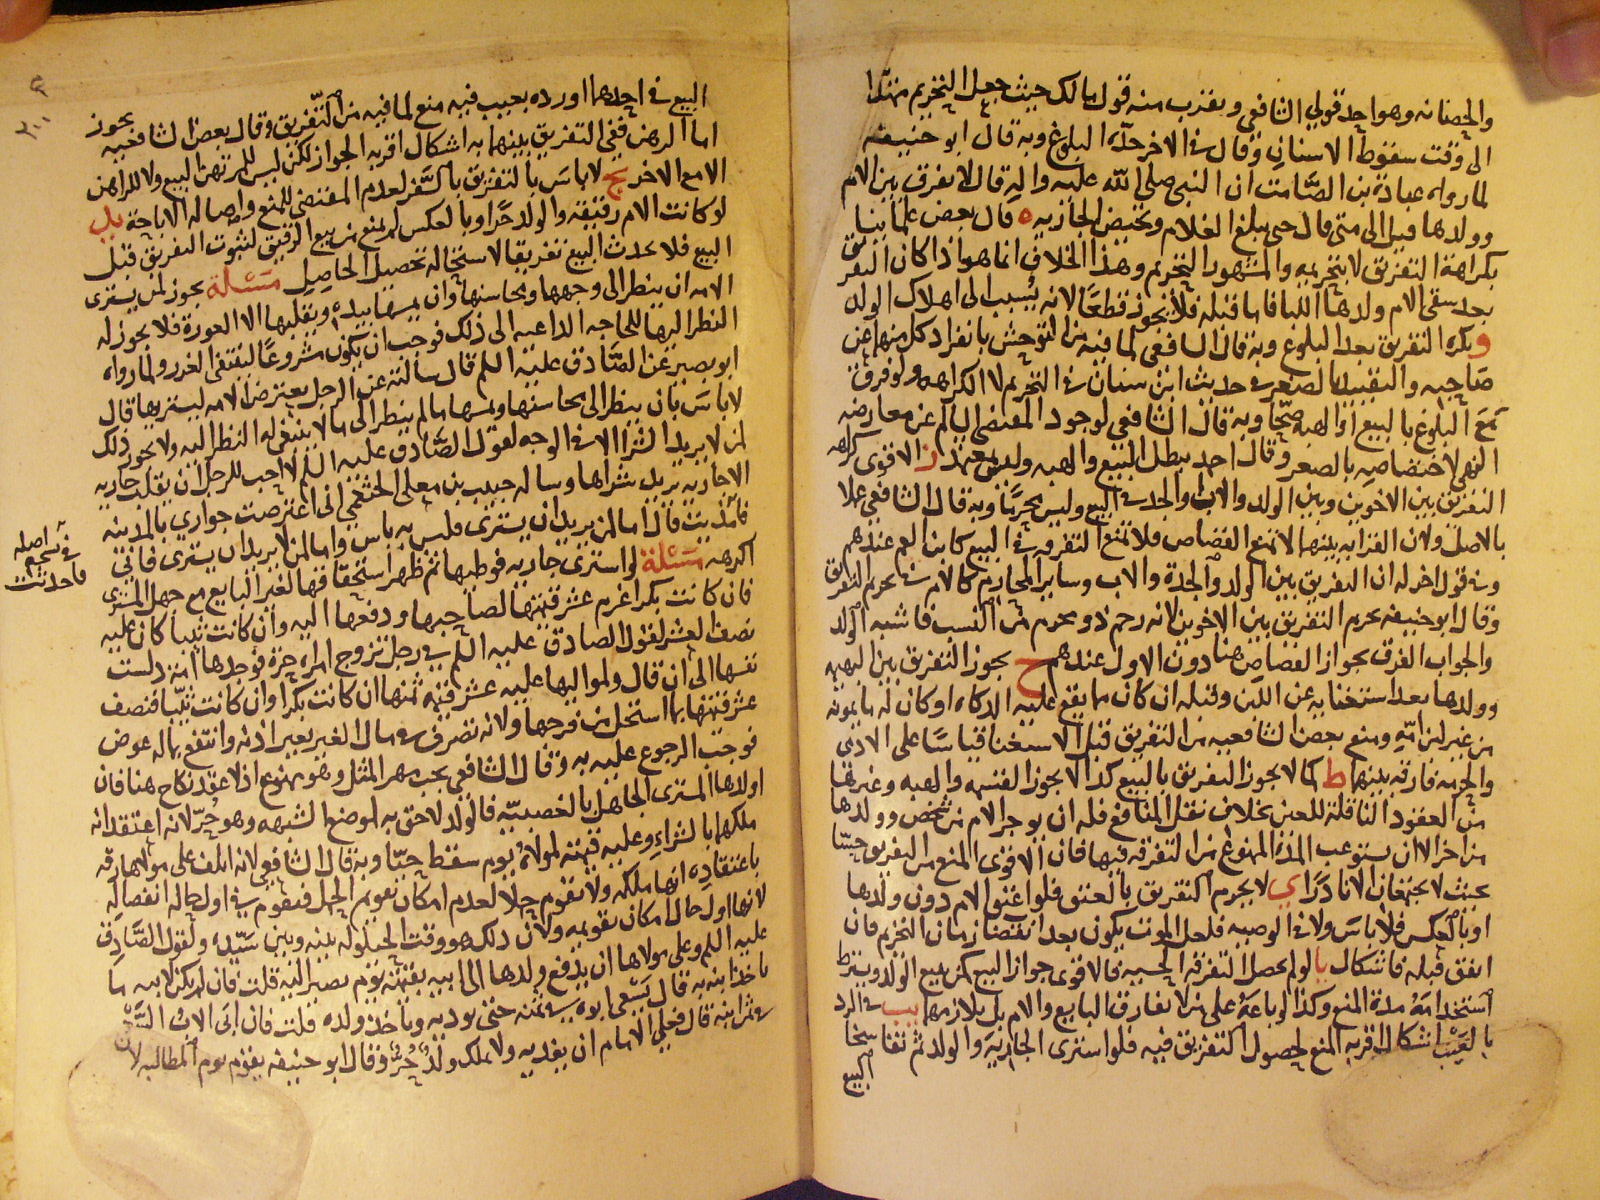 والحضانه وهو احد قولي الشافعي ويقرب منه قول مالك حيث جعل التحريم ممتدا
الى وقت سقوط الاسنان وقال في الاخر حده البلوغ وبه قال ابو حنيفه
لما رواه عبادة بن الصامت ان النبي صلى الله عليه واله قال لا يفرق بين الام
وولدها قيل الى متى قال حتى يبلغ الغلام وتحيض الجاريه ه قال بعض علمائنا
بكراهة التفريق لا بتحريمه والمشهور التحريم وهذا الخلاف انما هو اذا كان التفريق
بعد سقي الام ولدها اللبا فاما قبله فلا يجوز قطعا لانه يسبب الى اهلاك الولد
و يكره التفريق بعد البلوغ وبه قال الشافعي لما فيه من التوحش بانفراد كل منهما عن
صاحبه والتقييد بالصغر في حديث ابن سنان في التحريم لا الكراهه ولو فرق
مع البلوغ بالبيع او الهبه صحا وبه قال الشافعي لوجود المقتضي السالم عن معارضه
النهي لاختصاصه بالصغر وقال احمد يبطل البيع والهبه ز الاقوى كراهه
التفريق بين الاخوين وبين الولد والاب والجد في البيع وليس محرما وبه قال الشافعي عملا
بالاصل ولان القرابه بينهما لا تمنع القصاص فلا تمنع التفرقه في البيع كابن العم عندهم
وفي قول اخر له ان التفريق بين الولد والجدة والاب وساير المحارم كالام في تحريم التفريق
وقال ابو حنيفه يحرم التفريق بين الاخوين لانه رحم ذو محرم من النسب فاشبه الولد
والجواب الفرق بجواز القصاص هنا دون الاول عندهم ح يجوز التفريق بين البهيمه
وولدها بعد استغنايه عن اللبن وقبله ان كان مما يقع عليه الذكاه او كان له ما يمونه
من غير لبن امه ومنع بعض الشافعيه من التفريق قبل الاستغنا قياسا على الادمي
والحرمه فارقه بينهما ط كما لا يجوز التفريق بالبيع كذا لا يجوز القسمه والهبه وغيرها
من العقود الناقله للعين بخلاف نقل المنافع فله ان يوجر الام من شخص وولدها
من اخر الا ان يستوعب المدة الممنوع من التفرقه فيها فان الاقوى المنع من التفريق حينئذ
بحيث لا يجتمعان الا نادرا ي لا يحرم التفريق بالعتق فلو اعتق الام دون ولدها
او بالعكس فلا باس ولا في الوصيه فلعل الموت يكون بعد انقضا زمان التحريم فان
اتفق قبله فاشكال يا لو لم يحصل التفرقه الحسيه فالاقوى جواز البيع كمن يبيع الولد ويشترط
استخدامه مدة المنع وكذا لو باعه على من لا يفارق البايع والام بل يلازمها يب في الرد
بالعيب اشكال اقربه المنع لحصول التفريق فيه فلو اشترى الجاريه والولد ثم تفاسخا
البيع
البيع في احدهما او رده بعيب فيه منع لما فيه من التفريق وقال بعض الشافعيه يجوز
اما الرهن ففي التفريق بينهما به اشكال اقربه الجواز لكن ليس للمرتهن البيع ولا للراهن
الا مع الاخر يج لا باس بالتفريق بالسفر لعدم المقتضي للمنع واصاله الاباحة يد
لو كانت الام رقيقه والولد حرا او بالعكس لم يمنع من بيع الرقيق لثبوت التفريق قبل
البيع فلا يحدث البيع تفريقا لاستحاله تحصيل الحاصل مسئلة يجوز لمن يشتري
الامه ان ينظر الى وجهها ومحاسنها وان يمسها بيده ويقلبها الا العورة فلا يجوز له
النظر اليها للحاجه الداعيه الى ذلك فوجب ان يكون مشروعا لينتفي الغرر ولما رواه
ابو بصير عن الصادق عليه السلم قال سالته عن الرجل يعترض الامه ليشتريها قال
لا باس بان ينظر الى محاسنها ويمسها ما لم ينظر الى ما لا ينبغي له النظر اليه ولا يجوز ذلك
لمن لا يريد الشرا الا في الوجه لقول الصادق عليه السلم لا احب للرجل ان يقلب جاريه
الا جاريه يريد شراها وساله حبيب بن معلى الخثعمي اني اعترضت جواري بالمدينه
فامذيت فقال اما لمن يريد ان يشتري فليس به باس واما لمن لا يريد ان يشتري فاني
اكرهه مسئلة لو اشترى جاريه فوطيها ثم ظهر استحقاقها لغير البايع مع جهل المشتري
فان كانت بكرا غرم عشر قيمتها لصاحبها ودفعها اليه وان كانت ثيبا كان عليه
نصف العشر لقول الصادق عليه السلم في رجل تزوج امراه حرة فوجدها امة دلست
نفسها الى ان قال ولمواليها عليه عشر قيمه ثمنها ان كانت بكرا وان كانت ثيبا فنصف
عشر قيمتها بما استحل من فرجها ولانه تصرف في مال الغير بغير اذنه وانتفع بماله عوض
فوجب الرجوع عليه به وقال الشافعي يجب مهر المثل وهو ممنوع اذ لا عقد نكاح هنا فان
اولدها المشتري الجاهل بالغصبيه فالولد لاحق به لموضع الشبهه وهو حر لانه اعتقد انه
ملكها بالشراء وعليه قيمته لمولاه يوم سقط حيا وبه قال الشافعي لانه اتلف على مولاها رقه
باعتقاده انها ملكه ولا يقوم حملا لعدم امكان تقويم الحمل فيقوم في اول حاله انفصاله
لانها اول حال امكان تقويمه ولان ذلك هو وقت الحيلوله بينه وبين سيده ولقول الصادق
عليه السلم وعلى مولاها ان يدفع ولدها الى ابيه بقيمته يوم يصير اليه قلت فان لم يكن لابيه ما
ياخذ ابنه به قال يسعى ابوه في ثمنه حتى يوديه وياخذ ولده قلت فان ابى الاب السعي
في ثمن ابنه قال فعلى الامام ان يفديه ولا يملك ولد حر وقال ابو حنيفه يقوم يوم المطالبه لان
اصله
فاحدثت